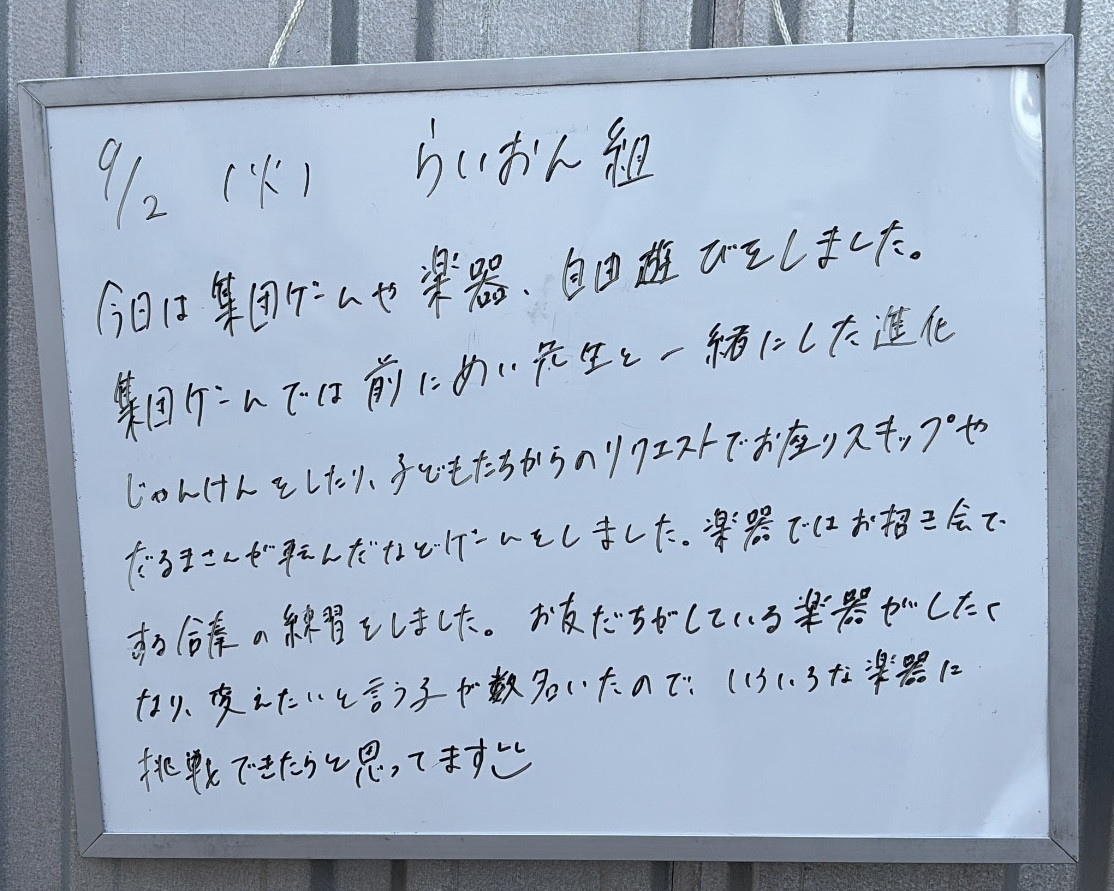 9/2 (火) らいおん組
今日は集団ゲームや楽器、自由遊びをしました。
集団ゲームでは前にめい先生と一緒にした進化
じゃんけんをしたり、子どもたちからのリクエストでお座りスキップや
だるまさんが転んだなどゲームをしました。楽器ではお招き会で
する合奏の練習をしました。お友だちがしている楽器がしたく
なり、変えたいと言う子が数名いたので、いろいろな楽器に
挑戦できたらと思ってます